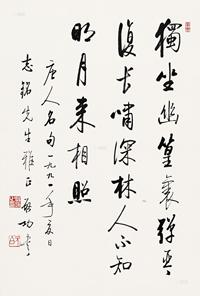 獨坐幽篁裏彈琴
復長嘯深林人不知
明月來相照
唐人名句一九九一年夏日
志銘先生雅正啟功書